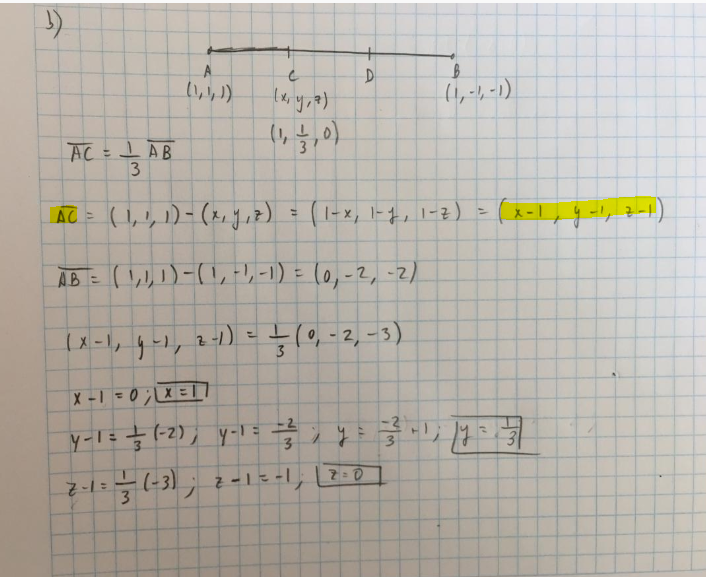 b)
A C D B
(1,1,1) (x, y, z) (1, -1, -1)
(1, 1/3, 0)
AC = 1/3 AB
AC = (1, 1, 1) - (x, y, z) = (1-x, 1-y, 1-z) = (x-1, y-1, z-1)
AB = (1,1,1) - (1, -1, -1) = (0, -2, -2)
(x-1, y-1, z-1) = 1/3 (0, -2, -3)
x-1=0; x=1
y-1= 1/3 (-2); y-1= -2/3 ; y= -2/3 +1; y= 1/3
z-1= 1/3 (-3); z-1=-1; z=0